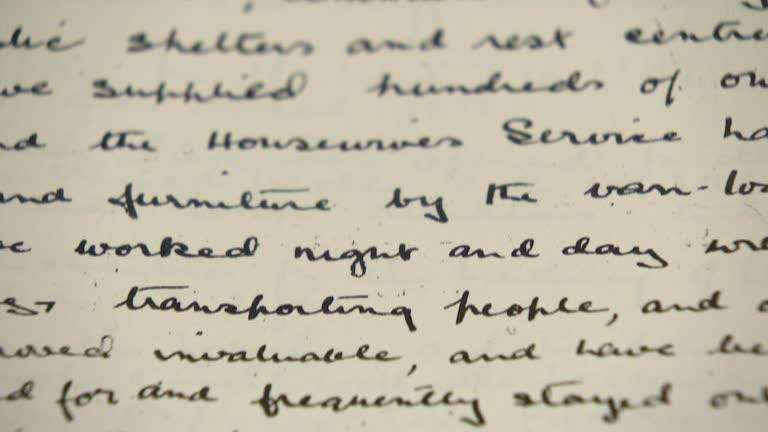 shelters and rest centre
supplied hundreds of
the Housewives Service ha
and furniture by the van-loa
worked night and day
transporting people, and
invaluable, and have be
for and frequently stayed out